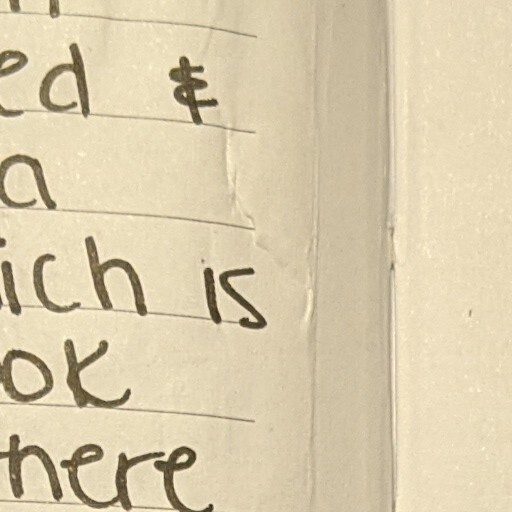 ed &
a
ich is
ok
here